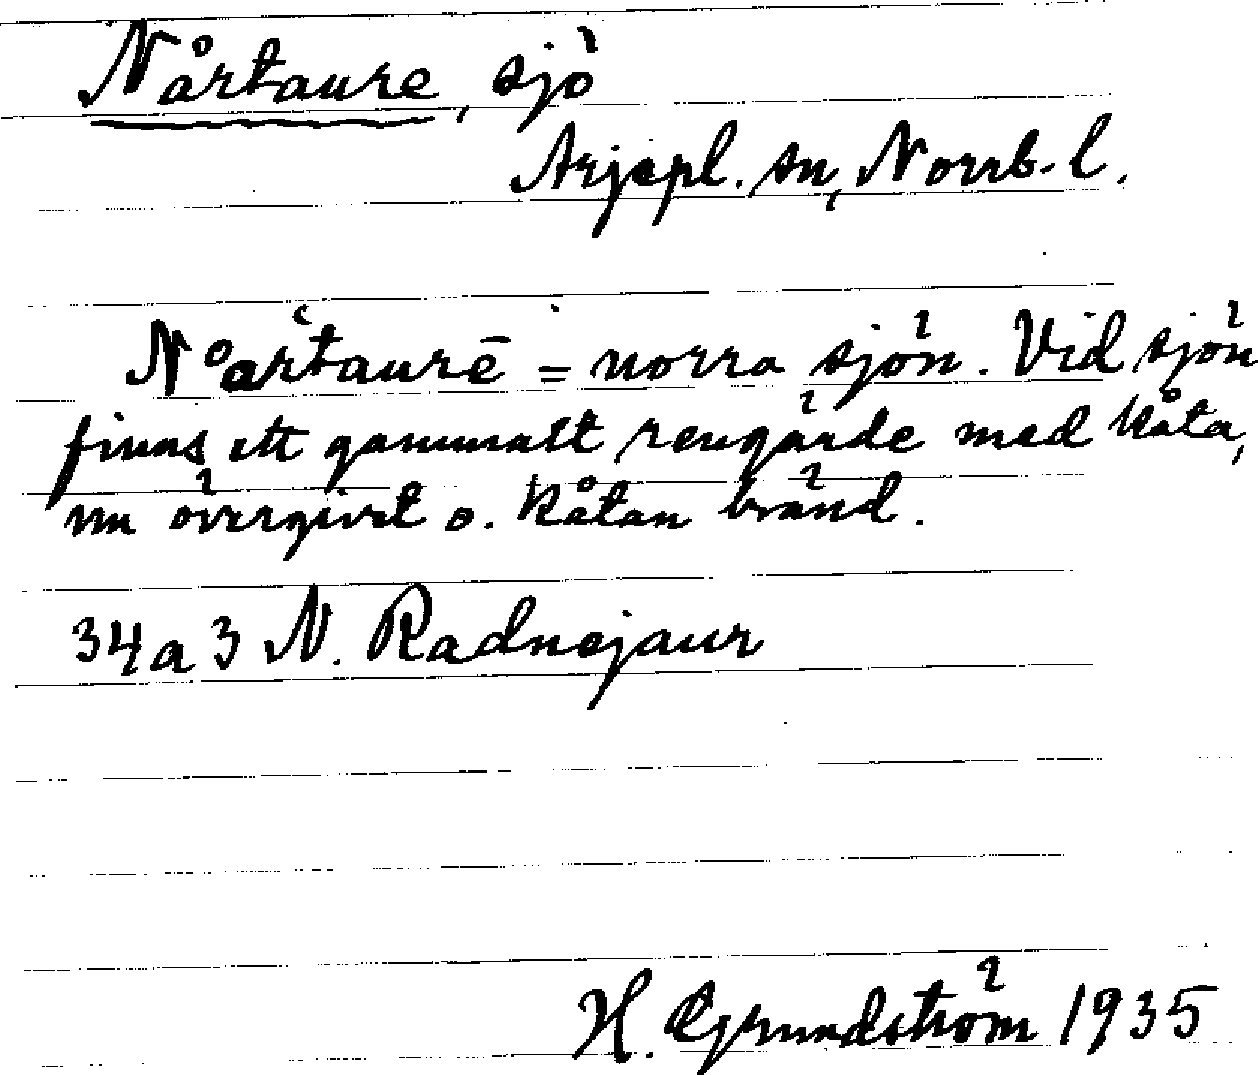 Nårtaure, sjö
Arjepl. sn, Norrb. l.
Nåarʽtaurē = norra sjön. Vid sjön
finns ett gammalt rengärde med kåta,
nu övergivet o. kåtan bränd.
34 a 3 N. Radnejaur
H. Grundström 1935